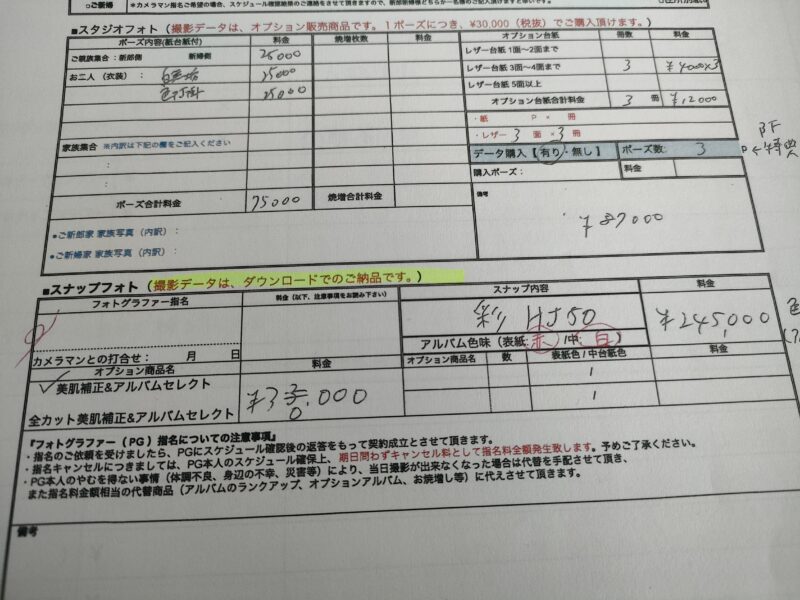 ＊カメラマン指名ご希望の場合、スケジュール確認結果のご連絡をさせて頂きますので、
■スタジオフォト（撮影データは、オプション販売商品です。１ポーズにつき、¥30,000（税抜）でご購入頂けます。）
ポーズ内容(紙台紙付) 料金 焼増枚数 料金 オプション台紙 冊数 料金
ご親族集合：新郎側 新婦側 25000 レザー台紙 1面～2面まで
お二人（衣装）： 白無垢 25000 レザー台紙 3面～4面まで 3 ¥4000×3
色打掛 25000 レザー台紙 5面以上
オプション台紙合計料金 3 冊 ¥12000
・紙 P × 冊
・レザー 3 面 × 3 冊
家族集合 ※内訳は下記の欄をご記入ください
データ購入【有り・無し】 ポーズ数: 3
BF
P ←特典
：
購入ポーズ： 料金
：
ポーズ合計料金 75000 焼増合計料金
備考
¥87000
●ご新郎家 家族写真（内訳）：
●ご新婦家 家族写真（内訳）：
■スナップフォト（撮影データは、ダウンロードでのご納品です。）
フォトグラファー指名 料金（以下、注意事項をお読み下さい） スナップ内容 料金
彩 HJ50 ¥245,000
アルバム色味（表紙:赤 /中:白）
カメラマンとの打合せ： 月 日
オプション商品名 料金 オプション商品名 数 表紙色 / 中台紙色 料金
✓美肌補正&アルバムセレクト /
全カット美肌補正&アルバムセレクト /
『フォトグラファー（PG）指名についての注意事項』
・指名のご依頼を受けましたら、PGにスケジュール確認後の返答をもって契約成立とさせて頂きます。
・指名キャンセルにつきましては、PG本人のスケジュール確保上、期日問わずキャンセル料として指名料金額発生致します。予めご了承ください。
・PG本人のやむを得ない事情（体調不良、身辺の不幸、災害等）により、当日撮影が出来なくなった場合は代替を手配させて頂き、
また指名料金額相当の代替商品（アルバムのランクアップ、オプションアルバム、お焼増し等）に代えさせて頂きます。
備考